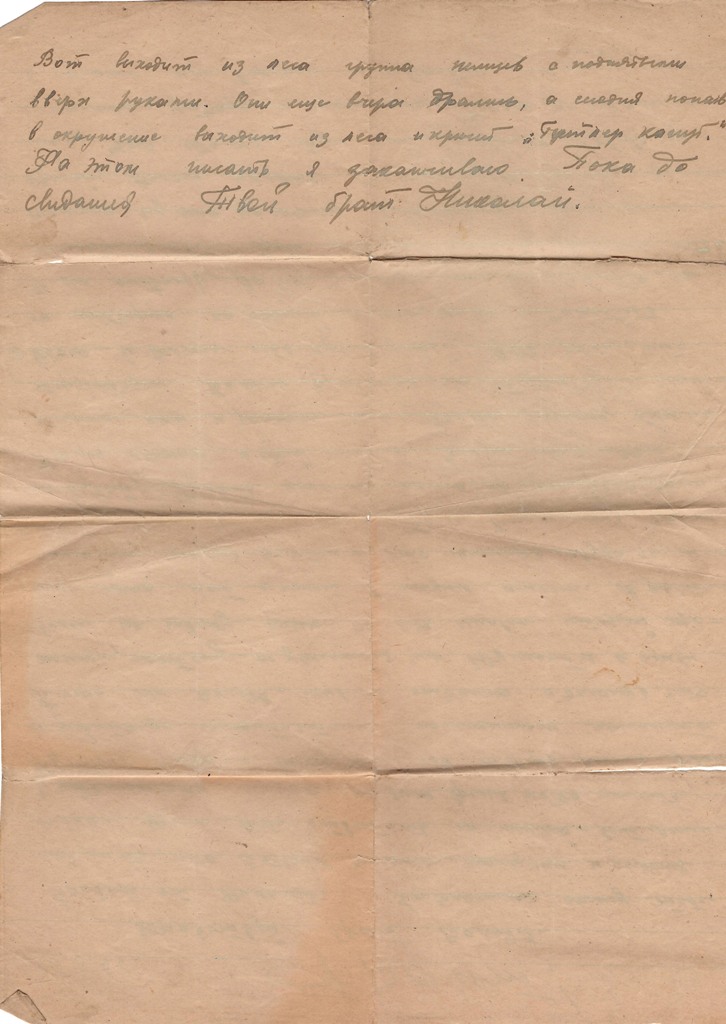 Вот выходит из леса группа немцев с поднятыми
вверх руками. Они еще вчера дрались, а сегодня попав
в окружение выходит из леса и кричит „Гитлер капут."
На этом писать я заканчиваю. Пока до
свидания Твой брат Николай.